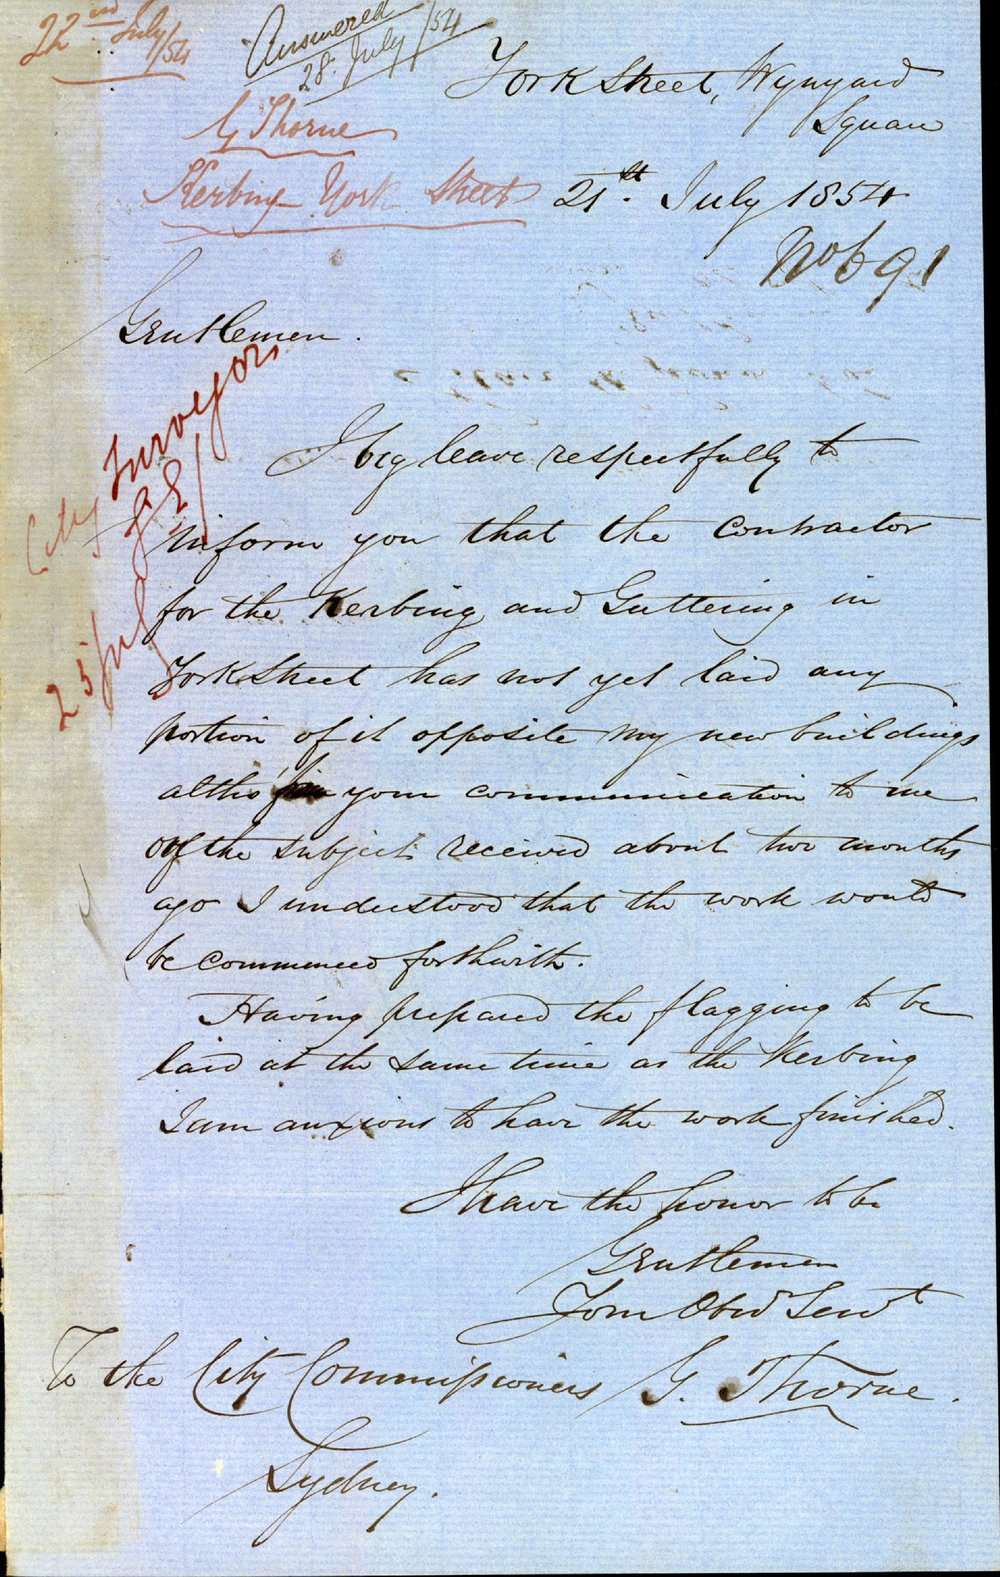 22nd July
/54
Answered
28. July /54
York Street, Wynyard
Square
G Thorne
Kerbing York Street
21st. July 1854
No 691
Gentlemen.
City Surveyor
25 July
I beg leave respectfully to
inform you that the Contractor
for the Kerbing and Guttering in
York Street has not yet laid any
portion of it opposite my new buildings
altho' from your communication to me
on the subject received about two months
ago I understood that the work would
be commenced forthwith.
Having prepared the flagging to be
laid at the same time as the Kerbing
I am anxious to have the work finished.
I have the honor to be
Gentlemen
Your Obed Servt
To the City Commissioners G. Thorne.
Sydney.